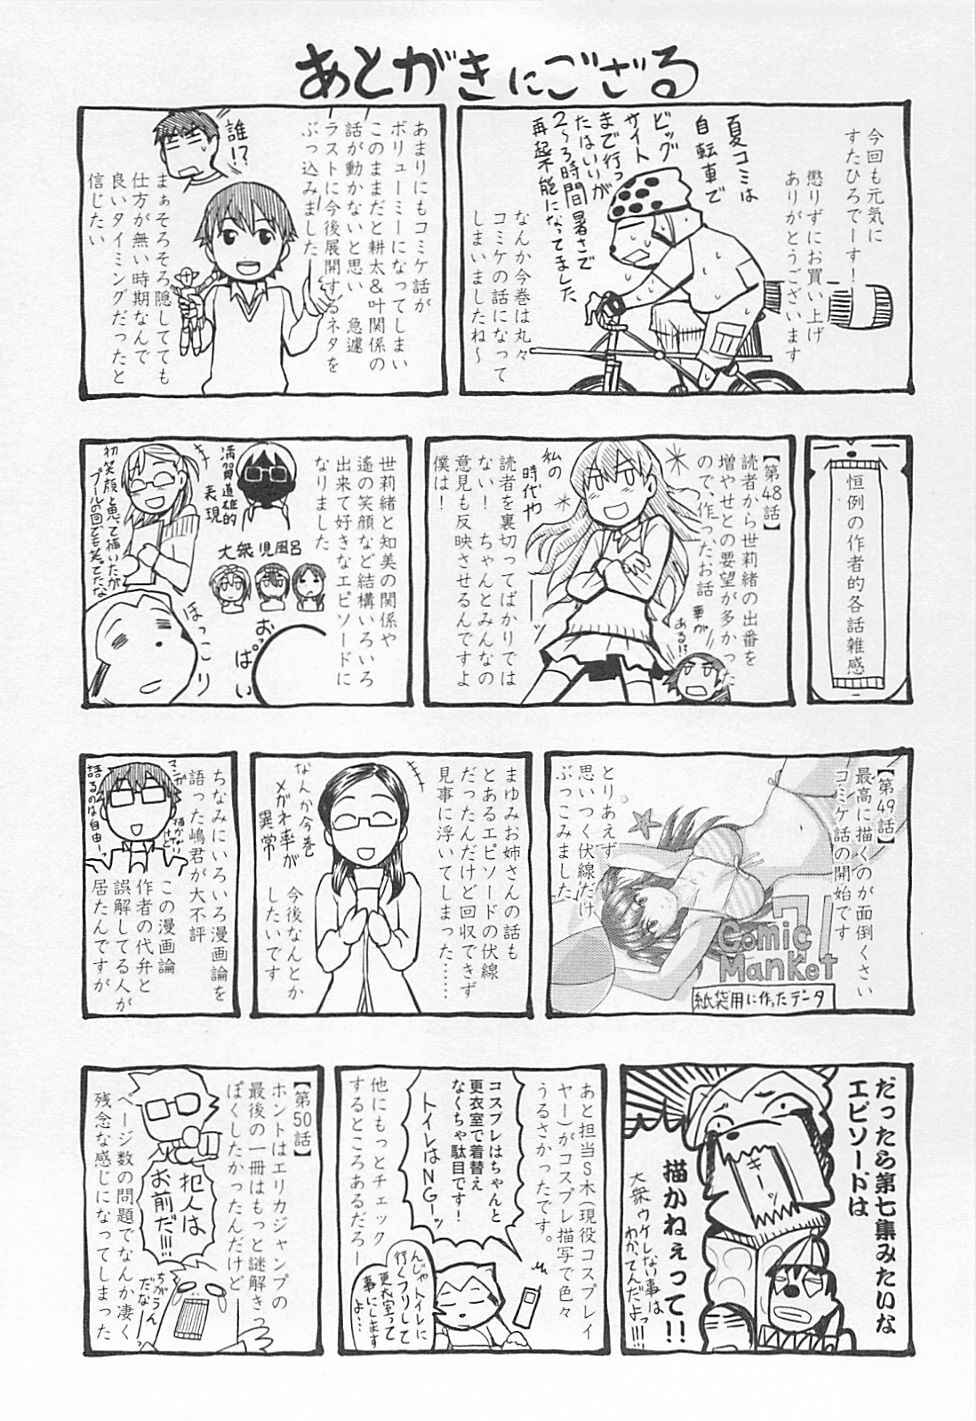 あとがきにござる
今回も元気に
すたひろでーす！
懲りずにお買い上げ
ありがとうございます
夏コミは
自転車で
ビッグ
サイト
まで行っ
たはいいが
2〜3時間暑さで
再起不能になってました
なんか今巻は丸々
コミケの話になって
しまいましたね〜
あまりにもコミケ話が
ボリューミーになってしまい
このままだと耕太＆叶関係の
話が動かないと思い　急遽
ラストに今後展開するネタを
ぶっ込みました
誰!?
まぁそろそろ隠してても
仕方が無い時期なんで
良いタイミングだったと
信じたい
恒例の作者的各話雑感
【第48話】
読者から世莉緒の出番を
増やせとの要望が多かった
ので、作ったお話
車が
ある!?
私の
時代や
読者を裏切ってばかりでは
ない！　ちゃんとみんなの
意見も反映させるんですよ
僕は！
世莉緒と知美の関係や
遙の笑顔など結構いろいろ
出来て好きなエピソードに
なりました
満賀道雄的
表現
大衆児風呂
初笑顔と思って描いたが
プールの回でも笑ってたな
おっぱい
ほっこり
【第49話】
最高に描くのが面倒くさい
コミケ話の開始です
とりあえず
思いつく伏線だけ
ぶっこみました
Comic
Market
71
紙袋用に作ったデータ
まゆみお姉さんの話も
とあるエピソードの伏線
だったんだけど回収できず
見事に浮いてしまった……
なんか今巻
メガネ率が
異常
今後なんとか
したいです
ちなみにいろいろ漫画論を
語った嶋君が大不評
マンガ
描かないけど
語るのは自由ー
この漫画論
作者の代弁と
誤解してる人が
居たんですが
だったら第七集みたいな
エピソードは
描かねぇって!!
大衆ウケしない事は
わかってんだよっ!!!
キーッ
あと担当S木（現役コスプレイ
ヤー）がコスプレ描写で色々
うるさかったです。
コスプレはちゃんと
更衣室で着替え
なくちゃ駄目です！
トイレはNGーッ
他にもっとチェック
するところあるだろー
んじゃトイレに
行くフリして
更衣室って
事にします
よ…
【第50話】
ホントはエリカジャンプの
最後の一冊はもっと謎解きっ
ぽくしたかったんだけど
犯人は
お前だ!!!
ちがうん
だなー
ページ数の問題でなんか凄く
残念な感じになってしまった